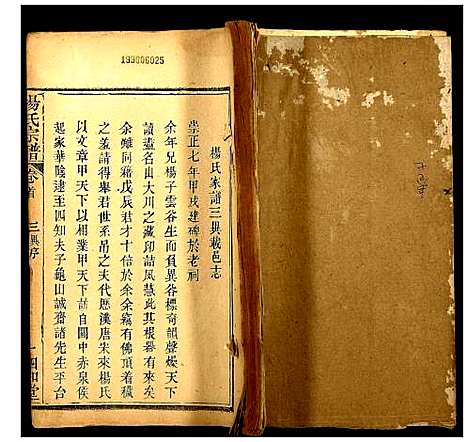 193006025
楊氏家譜三興載邑志
崇正七年甲戌建碑於老祠
余年兄楊子雲谷生而負異谷標奇韻聲燦天下
讀盡名山大川之藏印詰鳳慧此其根器有來矣
余雖同籍戊辰君才十倍於余余竊有佛頂着穢
之羞請得畢君世系吊之夫代歷漢唐宋來楊氏
以文章甲天下以相業甲天下諸自關中赤泉侯
起家華陰逮至四知夫子龜山誠齋諸先生平台
楊氏宗譜
卷首
三興序
一
四知堂